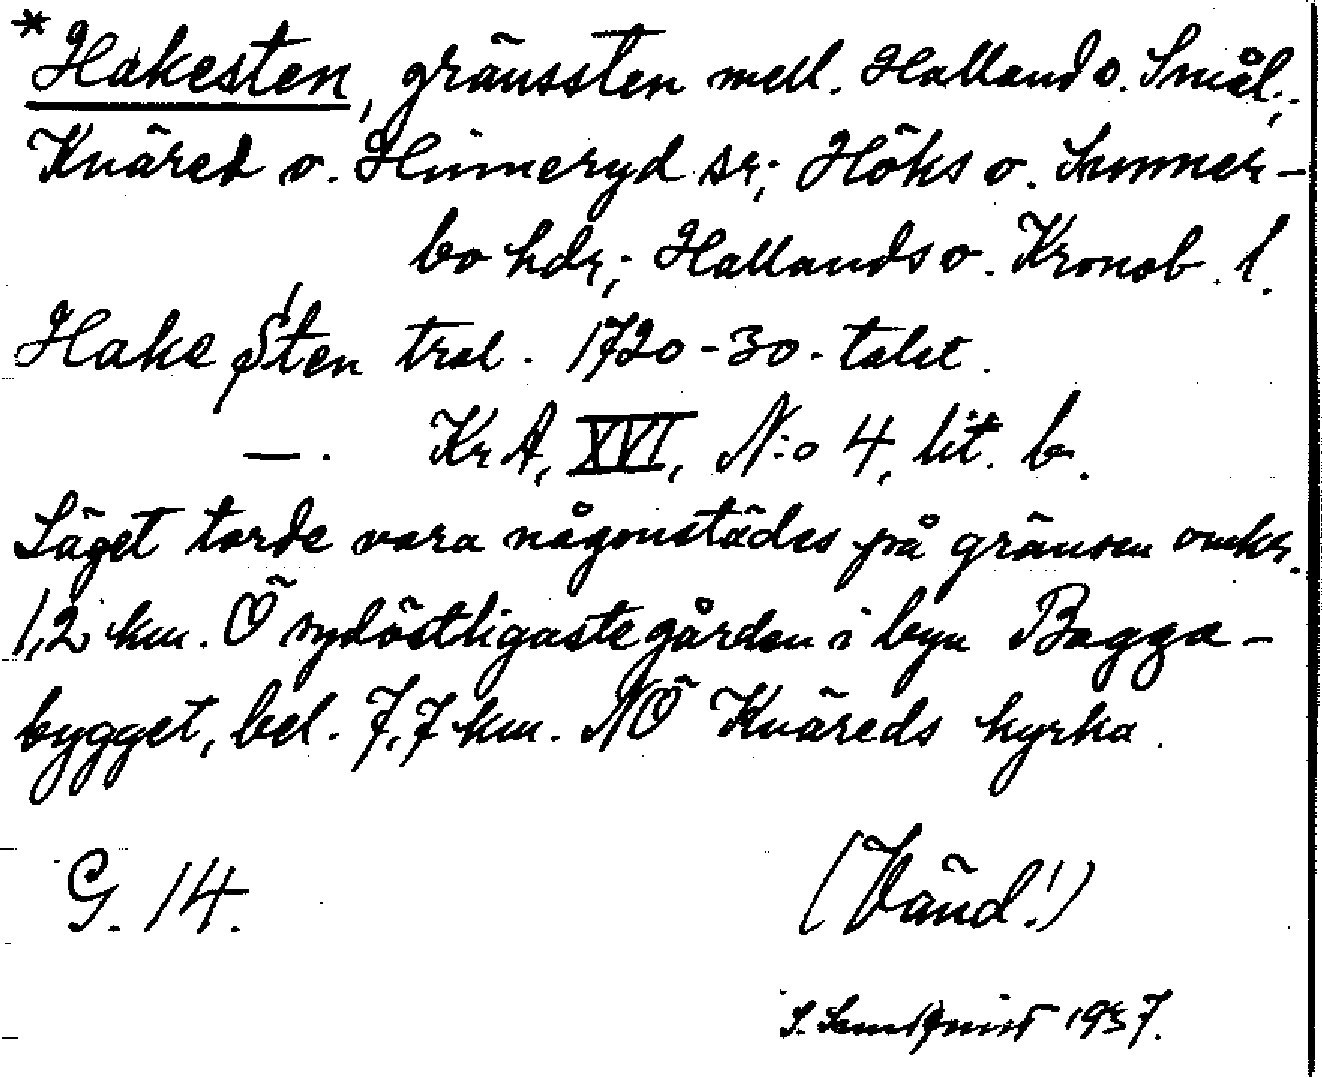 *Hakesten, gränssten mell. Halland o. Smål.;
Knäred o. Hinneryd sr; Höks o. Sunner-
bo hdr; Hallands o. Kronob. l.
Hake Sten trol. 1720-30-talet.
—. KrA, XVI, N:o 4, lit. b.
Läget torde vara någonstädes på gränsen omkr.
1,2 km. Ö sydöstligaste gården i byn Bagga-
bygget, bel. 7,7 km. NÖ Knäreds kyrka.
G. 14. (Vänd!)
S. 1937.